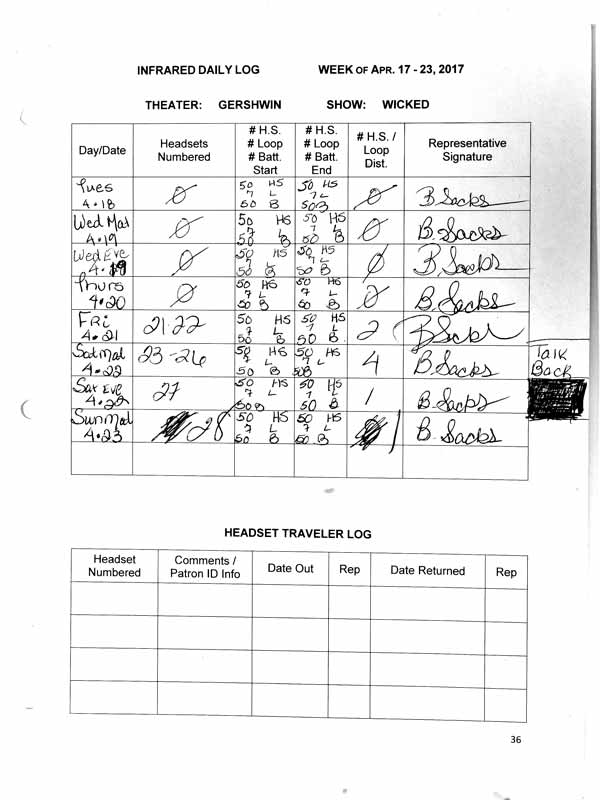 INFRARED DAILY LOG WEEK OF APR. 17 - 23, 2017
THEATER: GERSHWIN SHOW: WICKED
Day/Date Headsets Numbered # H.S. # Loop # Batt. Start # H.S. # Loop # Batt. End # H.S. / Loop Dist. Representative Signature
Tues 4.18 0 50 HS 7 L 50 B 50 HS 7 L 50 B 0 B Sacks
Wed Mat 4.19 0 50 HS 7 L 50 B 50 HS 7 L 50 B 0 B. Sacks
Wed Eve 4.19 0 50 HS 7 L 50 B 50 HS 7 L 50 B 0 B. Sacks
Thurs 4.20 0 50 HS 7 L 50 B 50 HS 7 L 50 B 0 B. Sacks
Fri 4.21 21.22 50 HS 7 L 50 B 50 HS 7 L 50 B 2 B Sacks
Sat Mat 4.22 23-26 50 HS 7 L 50 B 50 HS 7 L 50B 4 B. Sacks Talk Back
Sat Eve 4.22 27 50 HS 7 L 50 B 50 HS 7 L 50 B 1 B. Sacks
Sun Mat 4.23 28 50 HS 7 L 50 B 50 HS 7 L 50 B 1 B. Sacks
HEADSET TRAVELER LOG
Headset Numbered Comments / Patron ID Info Date Out Rep Date Returned Rep
36